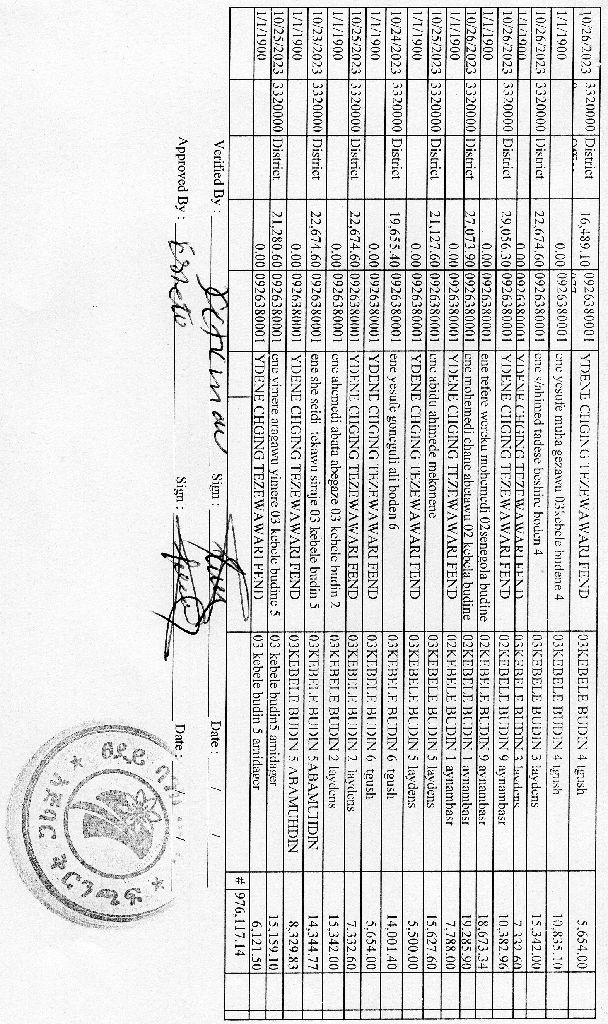 10/26/2023 3320000 District 16,489.10 0926380001 YDENE CHGING TEZEWAWARI FEND 03KEBELE BUDIN 4 tgush 5,654.00
1/1/1900 0.00 0926380001 ene yesufe muha gezawu 03kebele budene 4 03KEBELE BUDIN 4 tgush 10,835.10
10/26/2023 3320000 District 22,674.60 0926380001 ene s/ahimed tadese beshire boden 4 03KEBELE BUDIN 3 laydens 15,342.00
1/1/1900 0.00 0926380001 YDENE CHGING TEZEWAWARI FEND 03KEBELE BUDIN 3 laydens 7,332.60
10/26/2023 3320000 District 29,056.30 0926380001 YDENE CHGING TEZEWAWARI FEND 02KEBELE BUDIN 9 aynambasr 10,382.96
1/1/1900 0.00 0926380001 ene tefere wereku mohemedi 02senegola budine 02KEBELE BUDIN 9 aynambasr 18,673.34
10/26/2023 3320000 District 27,073.90 0926380001 ene mohemedi ebabe abetuwu 02 kebela budine 02KEBELE BUDIN 1 aynambasr 19,285.90
1/1/1900 0.00 0926380001 YDENE CHGING TEZEWAWARI FEND 02KEBELE BUDIN 1 aynambasr 7,788.00
10/25/2023 3320000 District 21,127.60 0926380001 ene abidu ahimede mekonene 03KEBELE BUDIN 5 laydens 15,627.60
1/1/1900 0.00 0926380001 YDENE CHGING TEZEWAWARI FEND 03KEBELE BUDIN 5 laydens 5,500.00
10/24/2023 3320000 District 19,655.40 0926380001 ene yesufe goneguli ali boden 6 03KEBELE BUDIN 6 tgush 14,001.40
1/1/1900 0.00 0926380001 YDENE CHGING TEZEWAWARI FEND 03KEBELE BUDIN 6 tgush 5,654.00
10/25/2023 3320000 District 22,674.60 0926380001 YDENE CHGING TEZEWAWARI FEND 03KEBELE BUDIN 2 laydens 7,332.60
1/1/1900 0.00 0926380001 ene ahemedi abata abegaze 03 kebele budin 2 03KEBELE BUDIN 2 laydens 15,342.00
10/23/2023 3320000 District 22,674.60 0926380001 ene she seidi tekawu siraje 03 kebele budin 5 03KEBELE BUDIN 5ABAMUHDIN 14,344.77
1/1/1900 0.00 0926380001 YDENE CHGING TEZEWAWARI FEND 03KEBELE BUDIN 5 ABAMUHDIN 8,329.83
10/25/2023 3320000 District 21,280.60 0926380001 ene yimere aragawu yimere 03 kebele budine 5 03 kebele budin5 amidager 15,159.10
1/1/1900 0.00 0926380001 YDENE CHGING TEZEWAWARI FEND 03 kebele budin 5 amidager 6,121.50
# 976,117.14
Verified By : Sign : Date : / /
Approved By : Sign : Date : / /